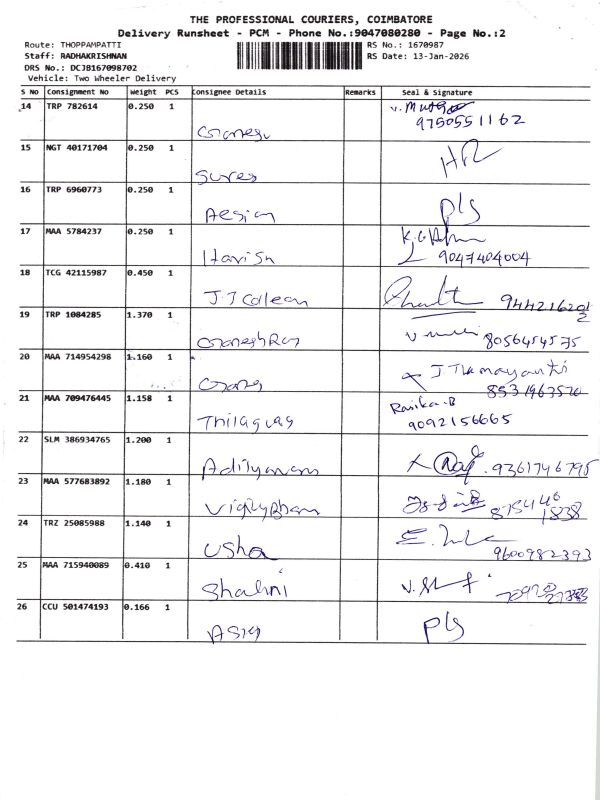 THE PROFESSIONAL COURIERS, COIMBATORE
Delivery Runsheet - PCM - Phone No.:9047080280 - Page No.:2
Route: THOPPAMPATTI RS No.: 1670987
Staff: RADHAKRISHNAN RS Date: 13-Jan-2026
DRS No.: DCJB167098702
Vehicle: Two Wheeler Delivery
S No Consignment No Weight PCS Consignee Details Remarks Seal & Signature
14 TRP 782614 0.250 1
9750551162
15 NGT 40171704 0.250 1
Sures HR
16 TRP 6960773 0.250 1
Pls
17 MAA 5784237 0.250 1
Harish 9047404004
18 TCG 42115987 0.450 1
19 TRP 1084285 1.370 1
8056454575
20 MAA 714954298 1.160 1
21 MAA 709476445 1.158 1
Rasika.B
9092156665
22 SLM 386934765 1.200 1
9361746795
23 MAA 577683892 1.180 1
24 TRZ 25085988 1.140 1
Usha 9600982393
25 MAA 715940089 0.410 1
Shalini
26 CCU 501474193 0.166 1
Pls